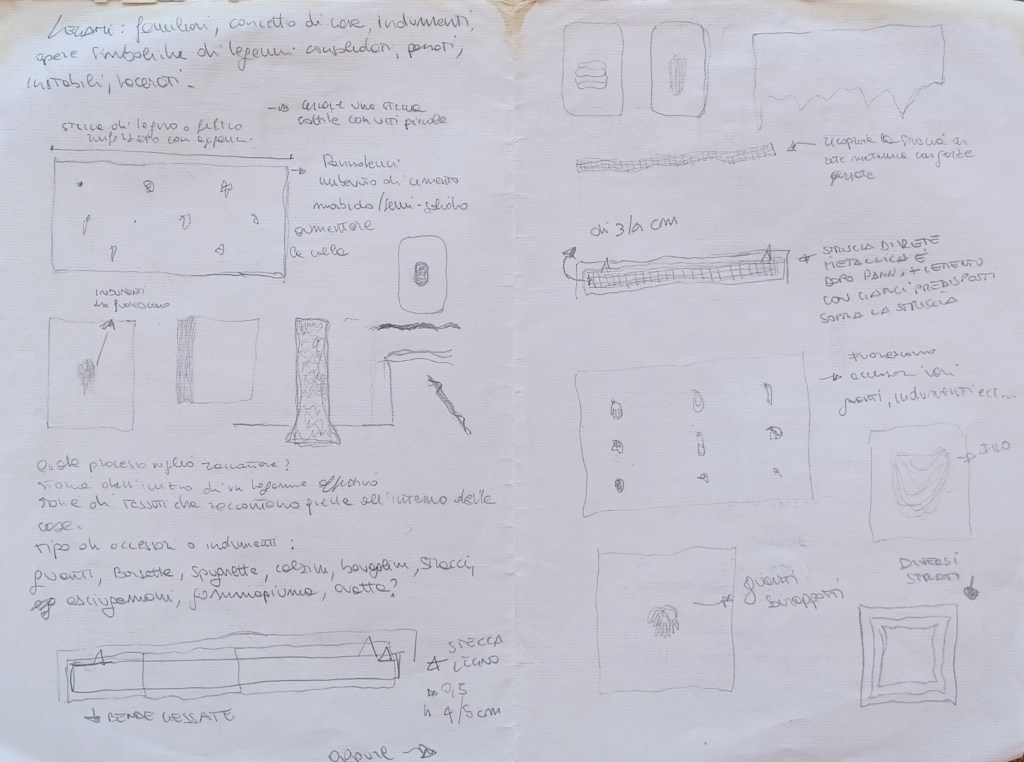 Legami: familiari, concetto di casa, Indumenti,
opere simboliche di legami consolidati, passati,
instabili, lacerati.
stecca di legno o filico
con
cercare una stecca
sottile con viti piccole
Pannolenci
imbevuto di cemento
morbido/semi-solido
aumentare
la colla
INDUMENTI
che fuoriescono
Quale processo voglio raccontare?
storia dell'inizio di un legame affettivo
storie di tessuti che raccontano quelle all'interno delle
case.
tipo di accessori o indumenti:
guanti, Borsette, Spugnette, calzini, bavaglini, Stracci,
asciugamani, gommapiuma, ovatta?
STECCA
LEGNO
0,5
h 4/5 cm
BENDE GESSATE
oppure
ricoprire la striscia di
rete metallica con garze
gessate
di 3/4 cm
STRISCIA DI RETE
METALLICA E
DOPO PANN. + CEMENTO
CON GANCI PREDISPOSTI
SOPRA LA STRISCIA
Fuoriescono
accessori
guanti, indumenti ecc...
FILO
guanti
strappati
DIVERSI
STRATI